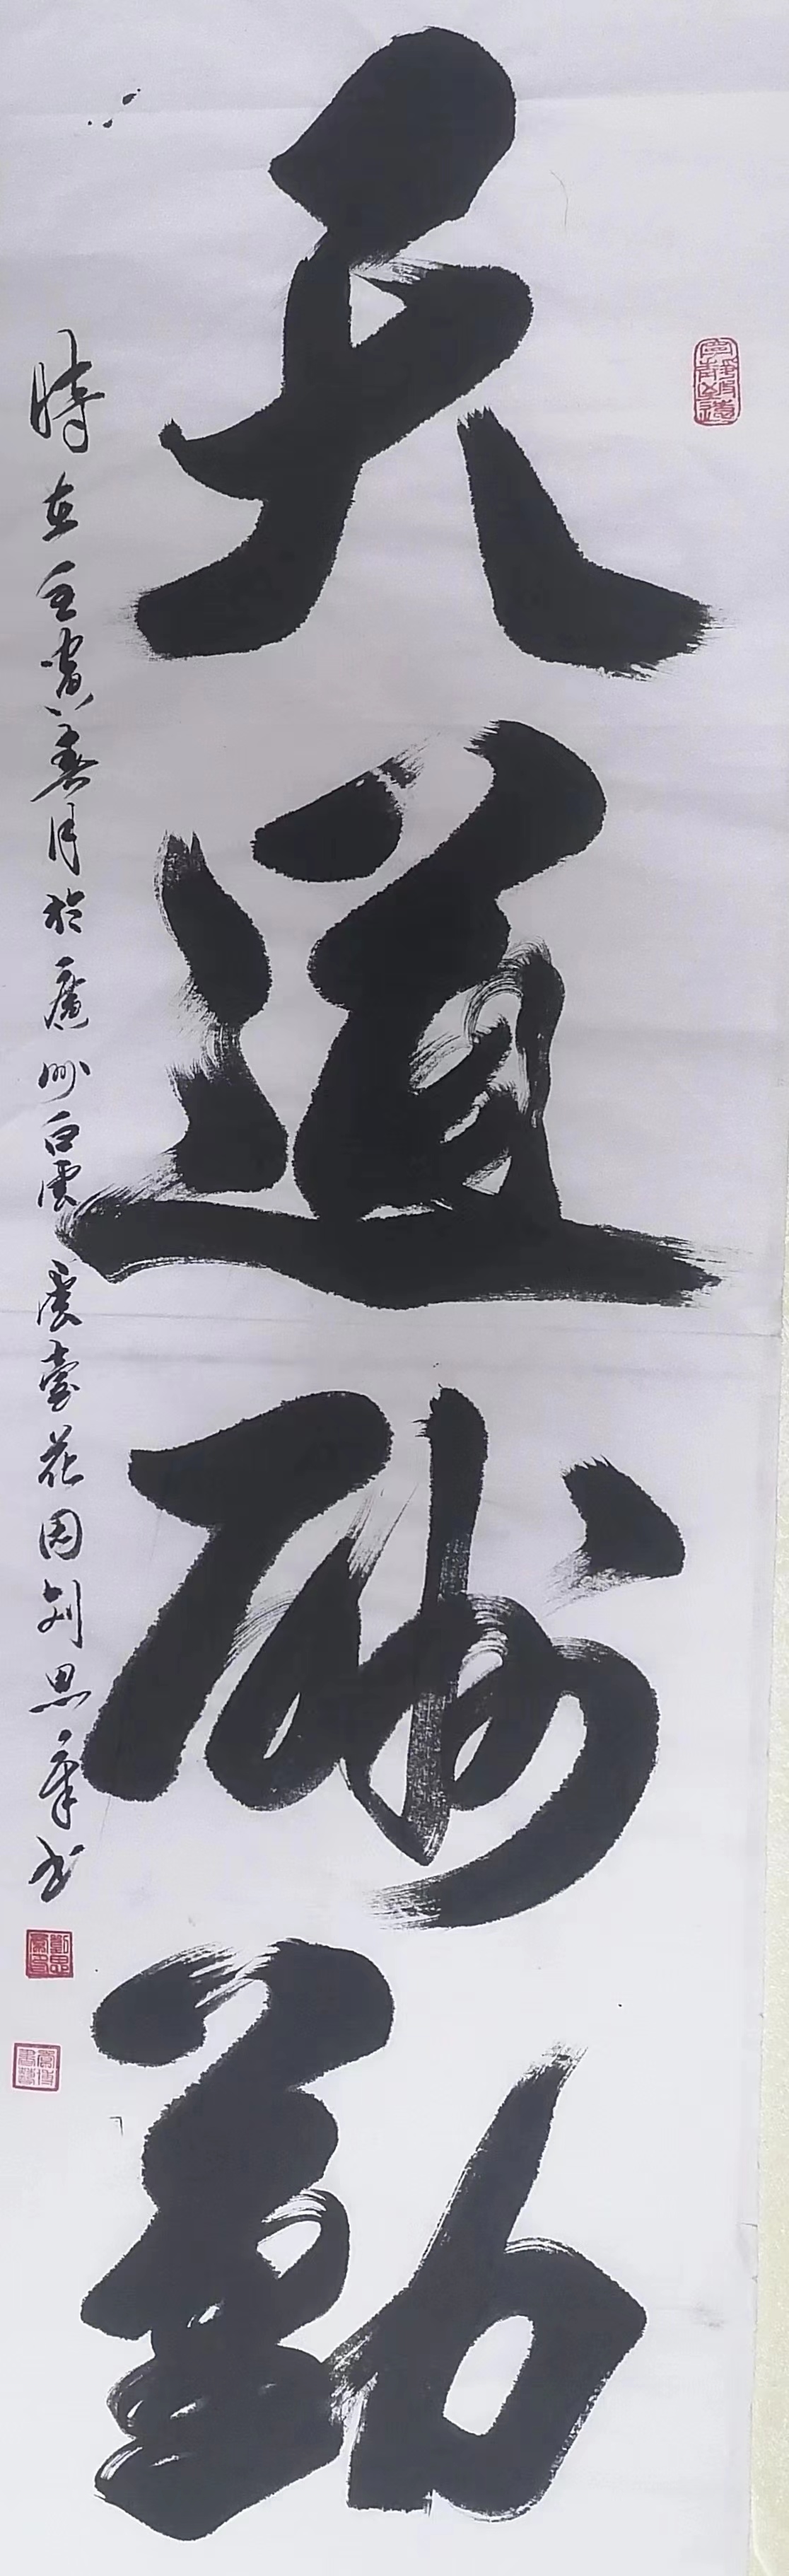 天道酬勤
時在壬寅春月於廣州白雲雲臺花園劉思軍书